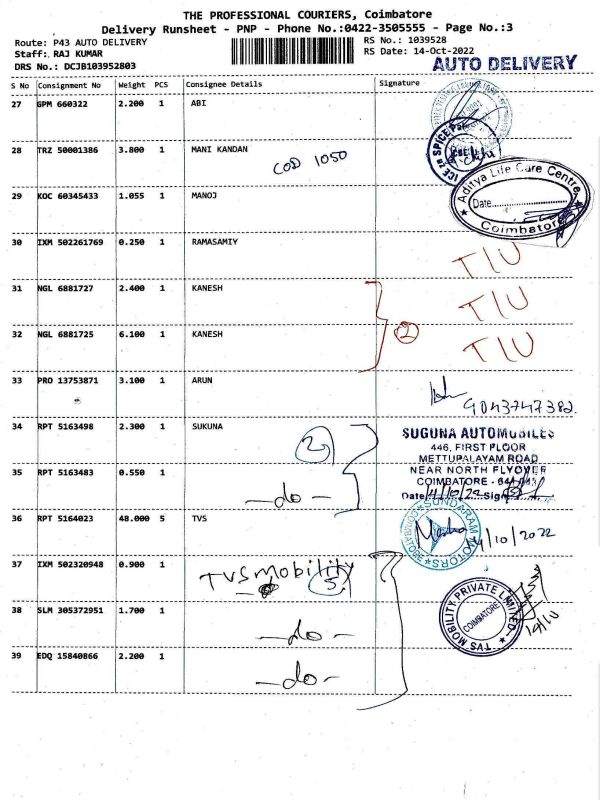 THE PROFESSIONAL COURIERS, Coimbatore
Delivery Runsheet - PNP - Phone No.:0422-3505555 - Page No.:3
Route: P43 AUTO DELIVERY
RS No.: 1039528
Staff: RAJ KUMAR
RS Date: 14-Oct-2022
DRS No.: DCJB103952803
AUTO DELIVERY
S No Consignment No Weight PCS Consignee Details Signature
27 GPM 660322 2.200 1 ABI
28 TRZ 50001386 3.800 1 MANI KANDAN
COD 1050
29 KOC 60345433 1.055 1 MANOJ
Aditya Life Care Centre
Date
Coimbatore
30 IXM 502261769 0.250 1 RAMASAMIY
T/U
31 NGL 6881727 2.400 1 KANESH
T/U
2
32 NGL 6881725 6.100 1 KANESH
T/U
33 PRO 13753871 3.100 1 ARUN
9043747382
34 RPT 5163498 2.300 1 SUKUNA
2
SUGUNA AUTOMOBILES
446, FIRST FLOOR
METTUPALAYAM ROAD
NEAR NORTH FLYOVER
35 RPT 5163483 0.550 1
COIMBATORE -
-do-
Date 14/10/22 Sign
36 RPT 5164023 48.000 5 TVS
SUNDARAM MOTORS
14/10/2022
37 IXM 502320948 0.900 1
TVS mobility
5
TVS MOBILITY PRIVATE LIMITED
COIMBATORE
14/10
38 SLM 305372951 1.700 1
-do-
39 EDQ 15840866 2.200 1
-do-